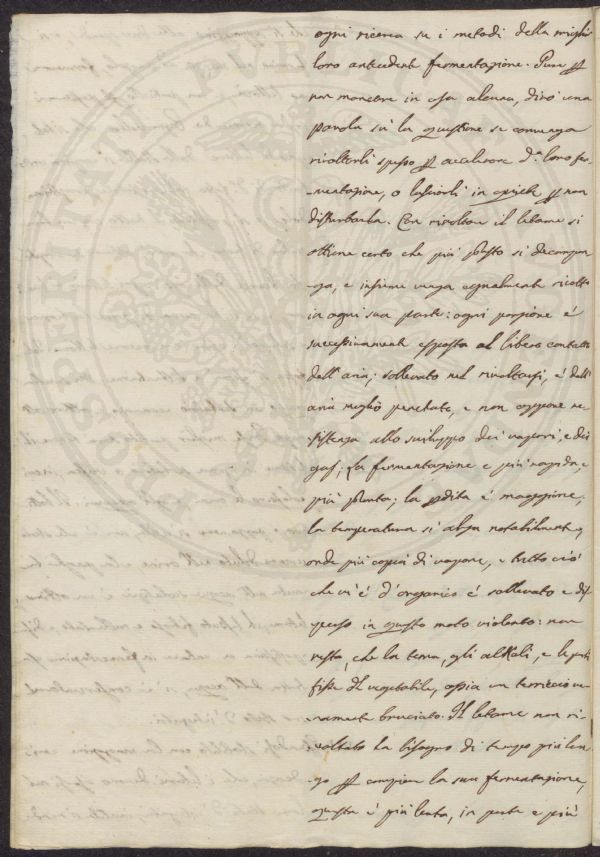 ogni ricerca su i metodi della miglior
loro antecedente fermentazione. Pure per
non mancare in cosa alcuna, dirò una
parola su la questione se convenga
rivolterli spesso per accelerare d.ª loro fer-
-mentazione, o lasciarli in quiete per non
disturbarla. Con rivoltare il letame si
ottiene certo che più presto si decompon
-ga, e insieme venga egualmente ricotto
in ogni sua parte: ogni porzione è
successivamente esposta al libero contatto
dell'aria; sollevato nel rivoltarsi, è dall'
aria meglio penetrato, e non oppone re-
sistenza allo sviluppo dei vapori, e dei
gas; la fermentazione e più rapida, e
più pronta; la perdita è maggiore;
la temperatura si alza notabilmente,
onde più copia di vapore, e tutto ciò
che vi è d'organico è sollevato e dis
perso in questo moto violento: non
resta, che la terra, gli alkali, e le parti
fisse del vegetabile, ossia un terriccio ve-
ramente bruciato. Il letame non ri-
voltato ha bisogno di tempo più lun-
go per compiere la sua fermentazione,
questa è più lenta, in parte e più
PUBLICAE
PROSPERITATI